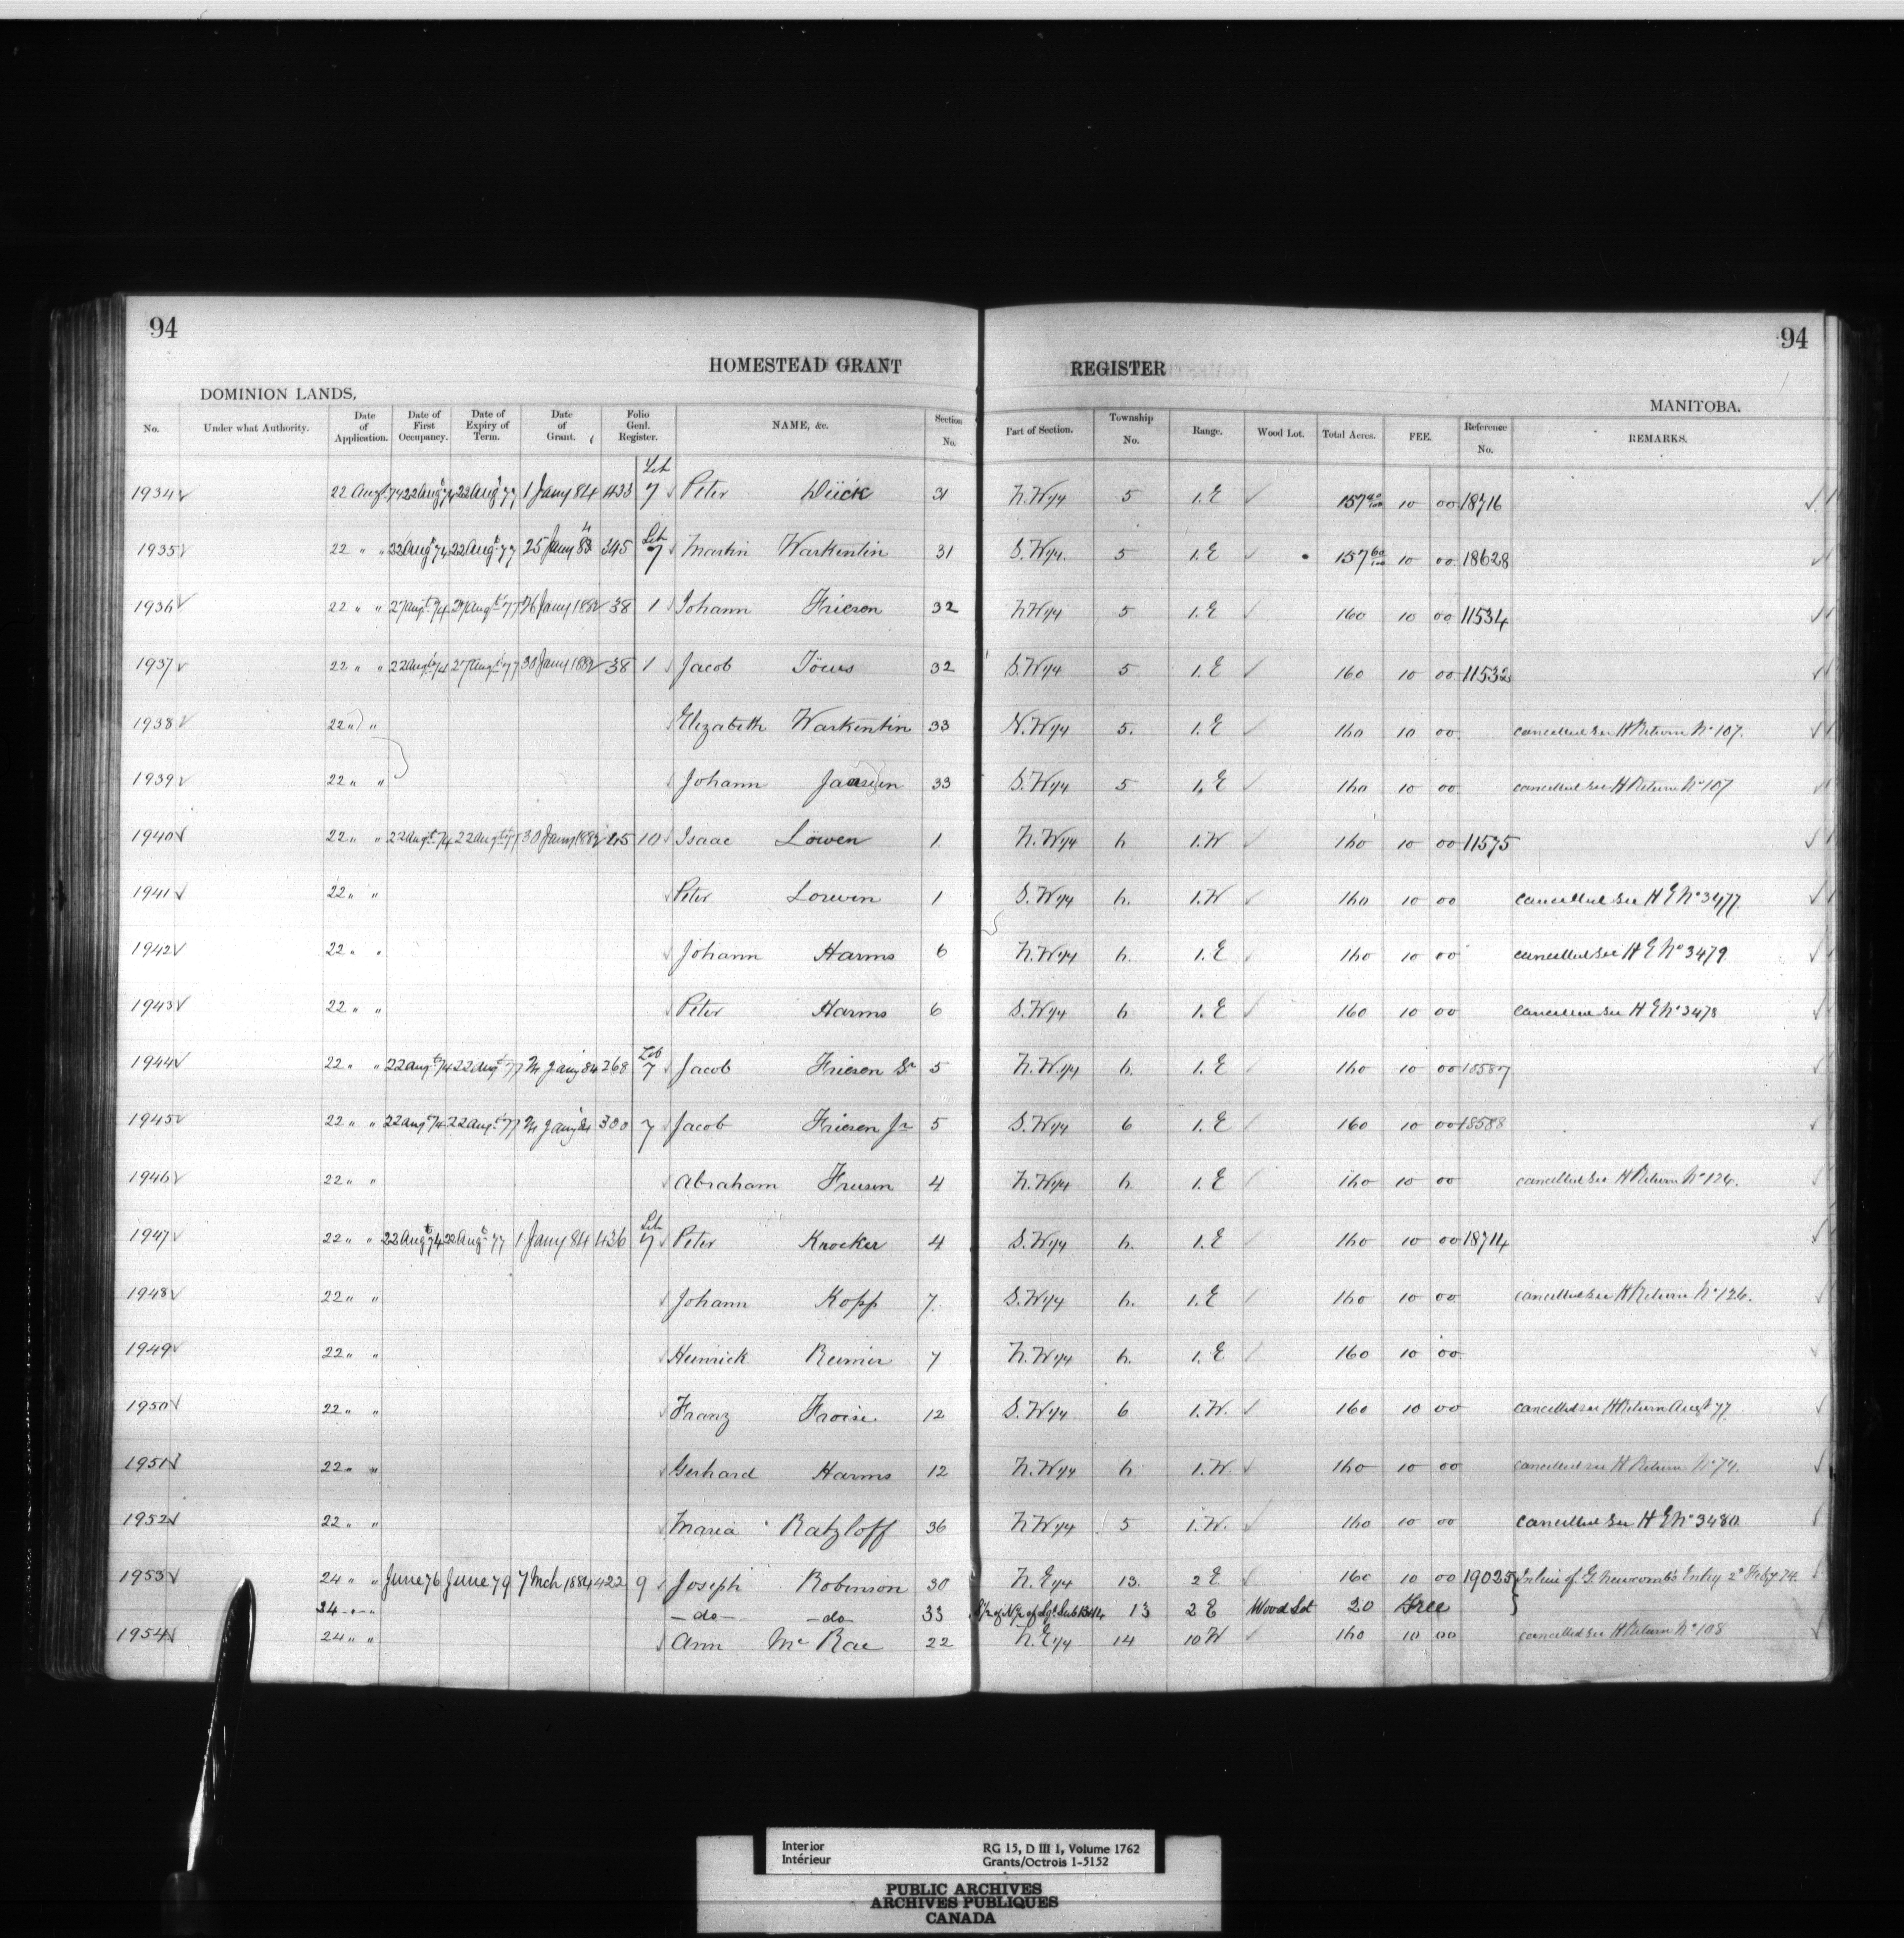 94
94
HOMESTEAD GRANT REGISTER
DOMINION LANDS,
MANITOBA.
No. Under what Authority. Date of Application. Date of First Occupancy. Date of Expiry of Term. Date of Grant. Folio Genl. Register. NAME, &c. Section No. Part of Section. Township No. Range. Wood Lot. Total Acres. FEE. Reference No. REMARKS.
1934 22 Augt 74 22 Augt 74 22 Augt 77 1 Jany 84 433 Lib 7 Peter Dück 31 N.W 1/4 5 1.E 157 10 00 18716
1935 22 " " 22 Augt 74 22 Augt 77 25 Jany 345 Lib 7 Martin Warkentin 31 S.W 1/4 5 1.E 157 60/100 10 00 18628
1936 22 " " 27 Augt 74 27 Augt 77 Jany 1882 38 1 Johann Friesen 32 NW 1/4 5 1.E 160 10 00 11534
1937 22 " " 22 Augt 74 27 Augt 77 30 Jany 1882 38 1 Jacob Töws 32 S.W 1/4 5 1.E 160 10 00 11532
1938 22 " " Elizabeth Warkentin 33 N.W 1/4 5. 1.E 160 10 00 cancelled see H Return No 107.
1939 22 " " Johann 33 S.W 1/4 5 1.E 160 10 00 cancelled see H Return No 107
1940 22 " " 22 Augt 74 22 Augt 77 30 Jany 1882 45 10 Isaac Löwen 1 N.W 1/4 6 1.W 160 10 00 11575
1941 22 " " Peter Loewen 1 S.W 1/4 6. 1.W 160 10 00 cancelled see H E No 3477
1942 22 " " Johann Harms 6 N.W 1/4 6. 1.E 160 10 00 cancelled see H E No 3479
1943 22 " " Peter Harms 6 S.W 1/4 6 1.E 160 10 00 cancelled see H E No 3478
1944 22 " " 22 Augt 74 22 Augt 77 Jany 84 268 Lib 7 Jacob Friesen Sr 5 N.W. 1/4 6. 1.E 160 10 00 18587
1945 22 " " 22 Augt 74 22 Augt 77 Jany 84 300 7 Jacob Friesen Jr 5 S.W 1/4 6 1.E 160 10 00 18588
1946 22 " " Abraham Friesen 4 N.W 1/4 6. 1.E 160 10 00 cancelled see H Return No 124.
1947 22 " " 22 Augt 74 22 Augt 77 1 Jany 84 436 Lib 7 Peter Knocker 4 S.W 1/4 6. 1.E 160 10 00 18714
1948 22 " " Johann Kopp 7. S.W 1/4 6. 1.E 160 10 00 cancelled see H Return No 126.
1949 22 " " Heinrick Reimer 7 N.W 1/4 6. 1.E 160 10 00
1950 22 " " Franz Froise 12 S.W 1/4 6 1.W. 160 10 00 cancelled see H Return Augt 77
1951 22 " " Gerhard Harms 12 N.W 1/4 6 1.W. 160 10 00 cancelled see H Return No 79.
1952 22 " " Maria Ratzloff 36 N.W 1/4 5 1.W. 160 10 00 cancelled see H E No 3480.
1953 24 " " June 76 June 79 7 Mch 1884 422 9 Joseph Robinson 30 N.E 1/4 13. 2 E 160 10 00 19025 In lieu of G. Newcomb's Entry 2d Feby 74.
24 " " -do- -do- 33 13 2 E Wood Lot 20 Free
1954 24 " " Ann Mc Rae 22 N.E 1/4 14 10 W 160 10 00 cancelled see H Return No 108
Interior RG 15, D III 1, Volume 1762
Intérieur Grants/Octrois 1-5152
PUBLIC ARCHIVES
ARCHIVES PUBLIQUES
CANADA